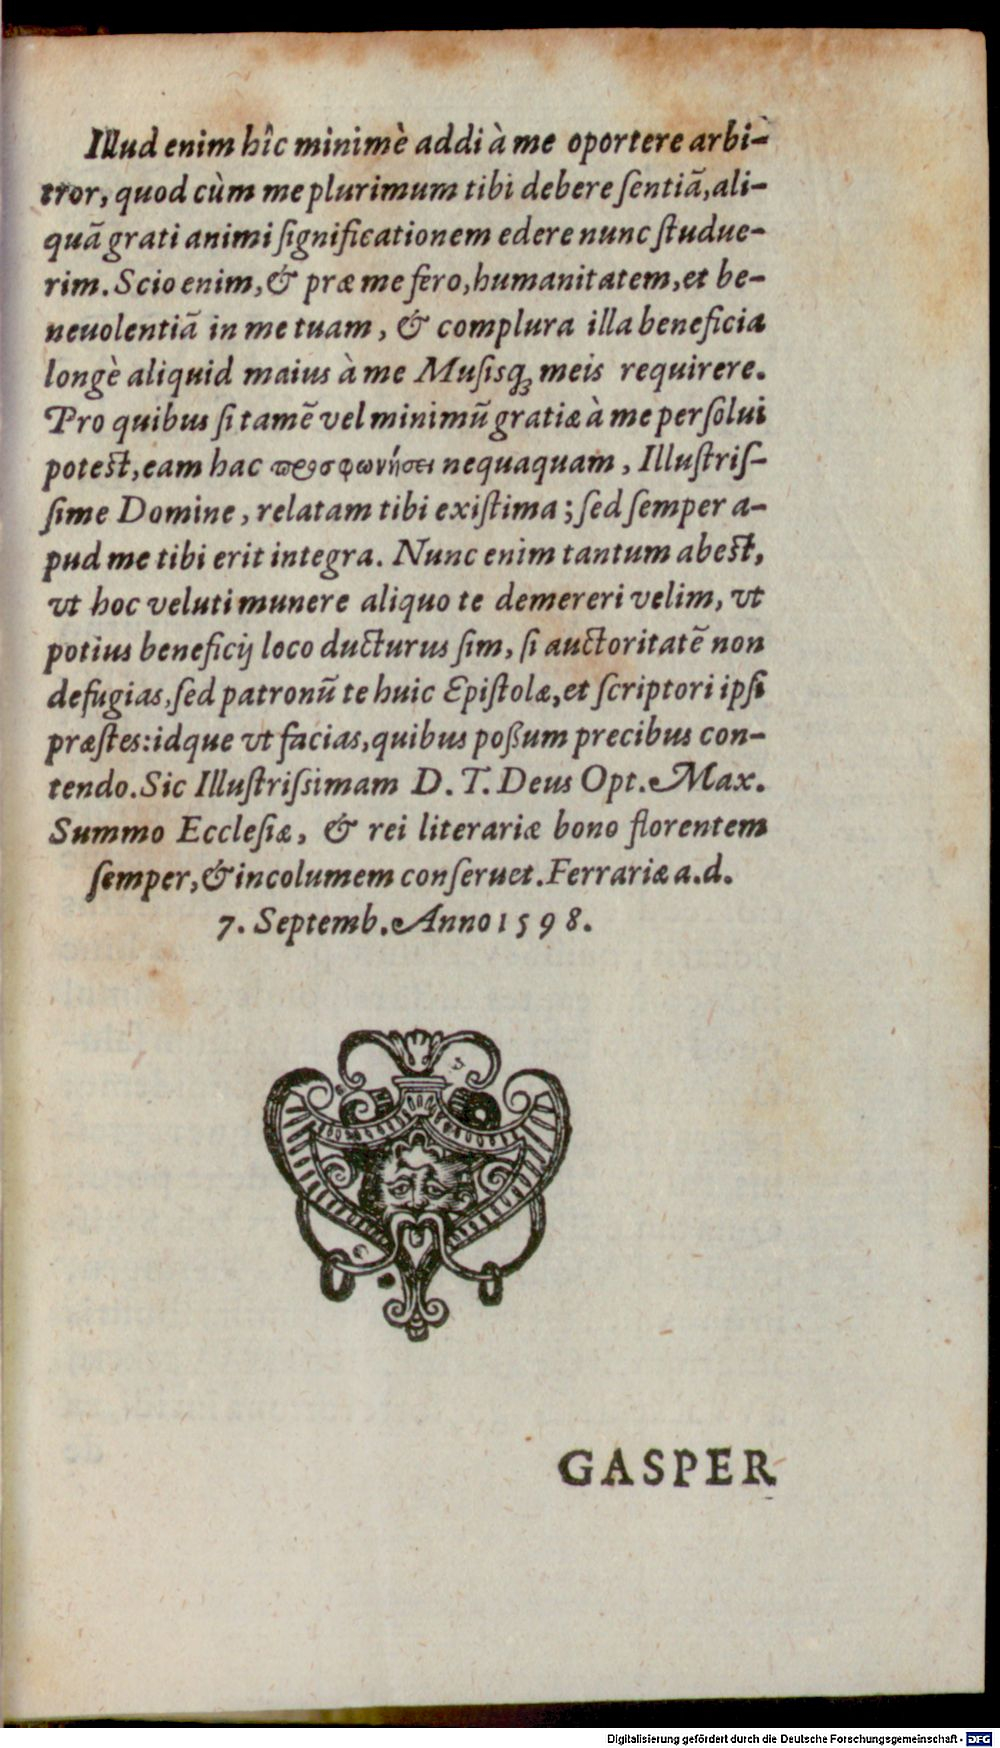 Illud enim hîc minimè addi à me oportere arbi-
tror, quod cùm me plurimum tibi debere ſentiã, ali-
quã grati animi ſignificationem edere nunc ſtudue-
rim. Scio enim, & præ me fero, humanitatem, et be-
neuolentiã in me tuam, & complura illa beneficia
longè aliquid maius à me Muſisq; meis requirere.
Pro quibus ſi tamẽ vel minimũ gratiæ à me perſolui
poteſt, eam hac προσφωνήσει nequaquam, Illuſtriſ-
ſime Domine, relatam tibi exiſtima; ſed ſemper a-
pud me tibi erit integra. Nunc enim tantum abeſt,
vt hoc veluti munere aliquo te demereri velim, vt
potius beneficij loco ducturus ſim, ſi auctoritatẽ non
defugias, ſed patronũ te huic Epiſtolæ, et ſcriptori ipſi
præſtes: idque vt facias, quibus poßum precibus con-
tendo. Sic Illuſtriſsimam D. T. Deus Opt. Max.
Summo Eccleſiæ, & rei literariæ bono florentem
ſemper, & incolumem conſeruet. Ferrariæ a. d.
7. Septemb. Anno 1598.
GASPER
Digitalisierung gefördert durch die Deutsche Forschungsgemeinschaft - DFG